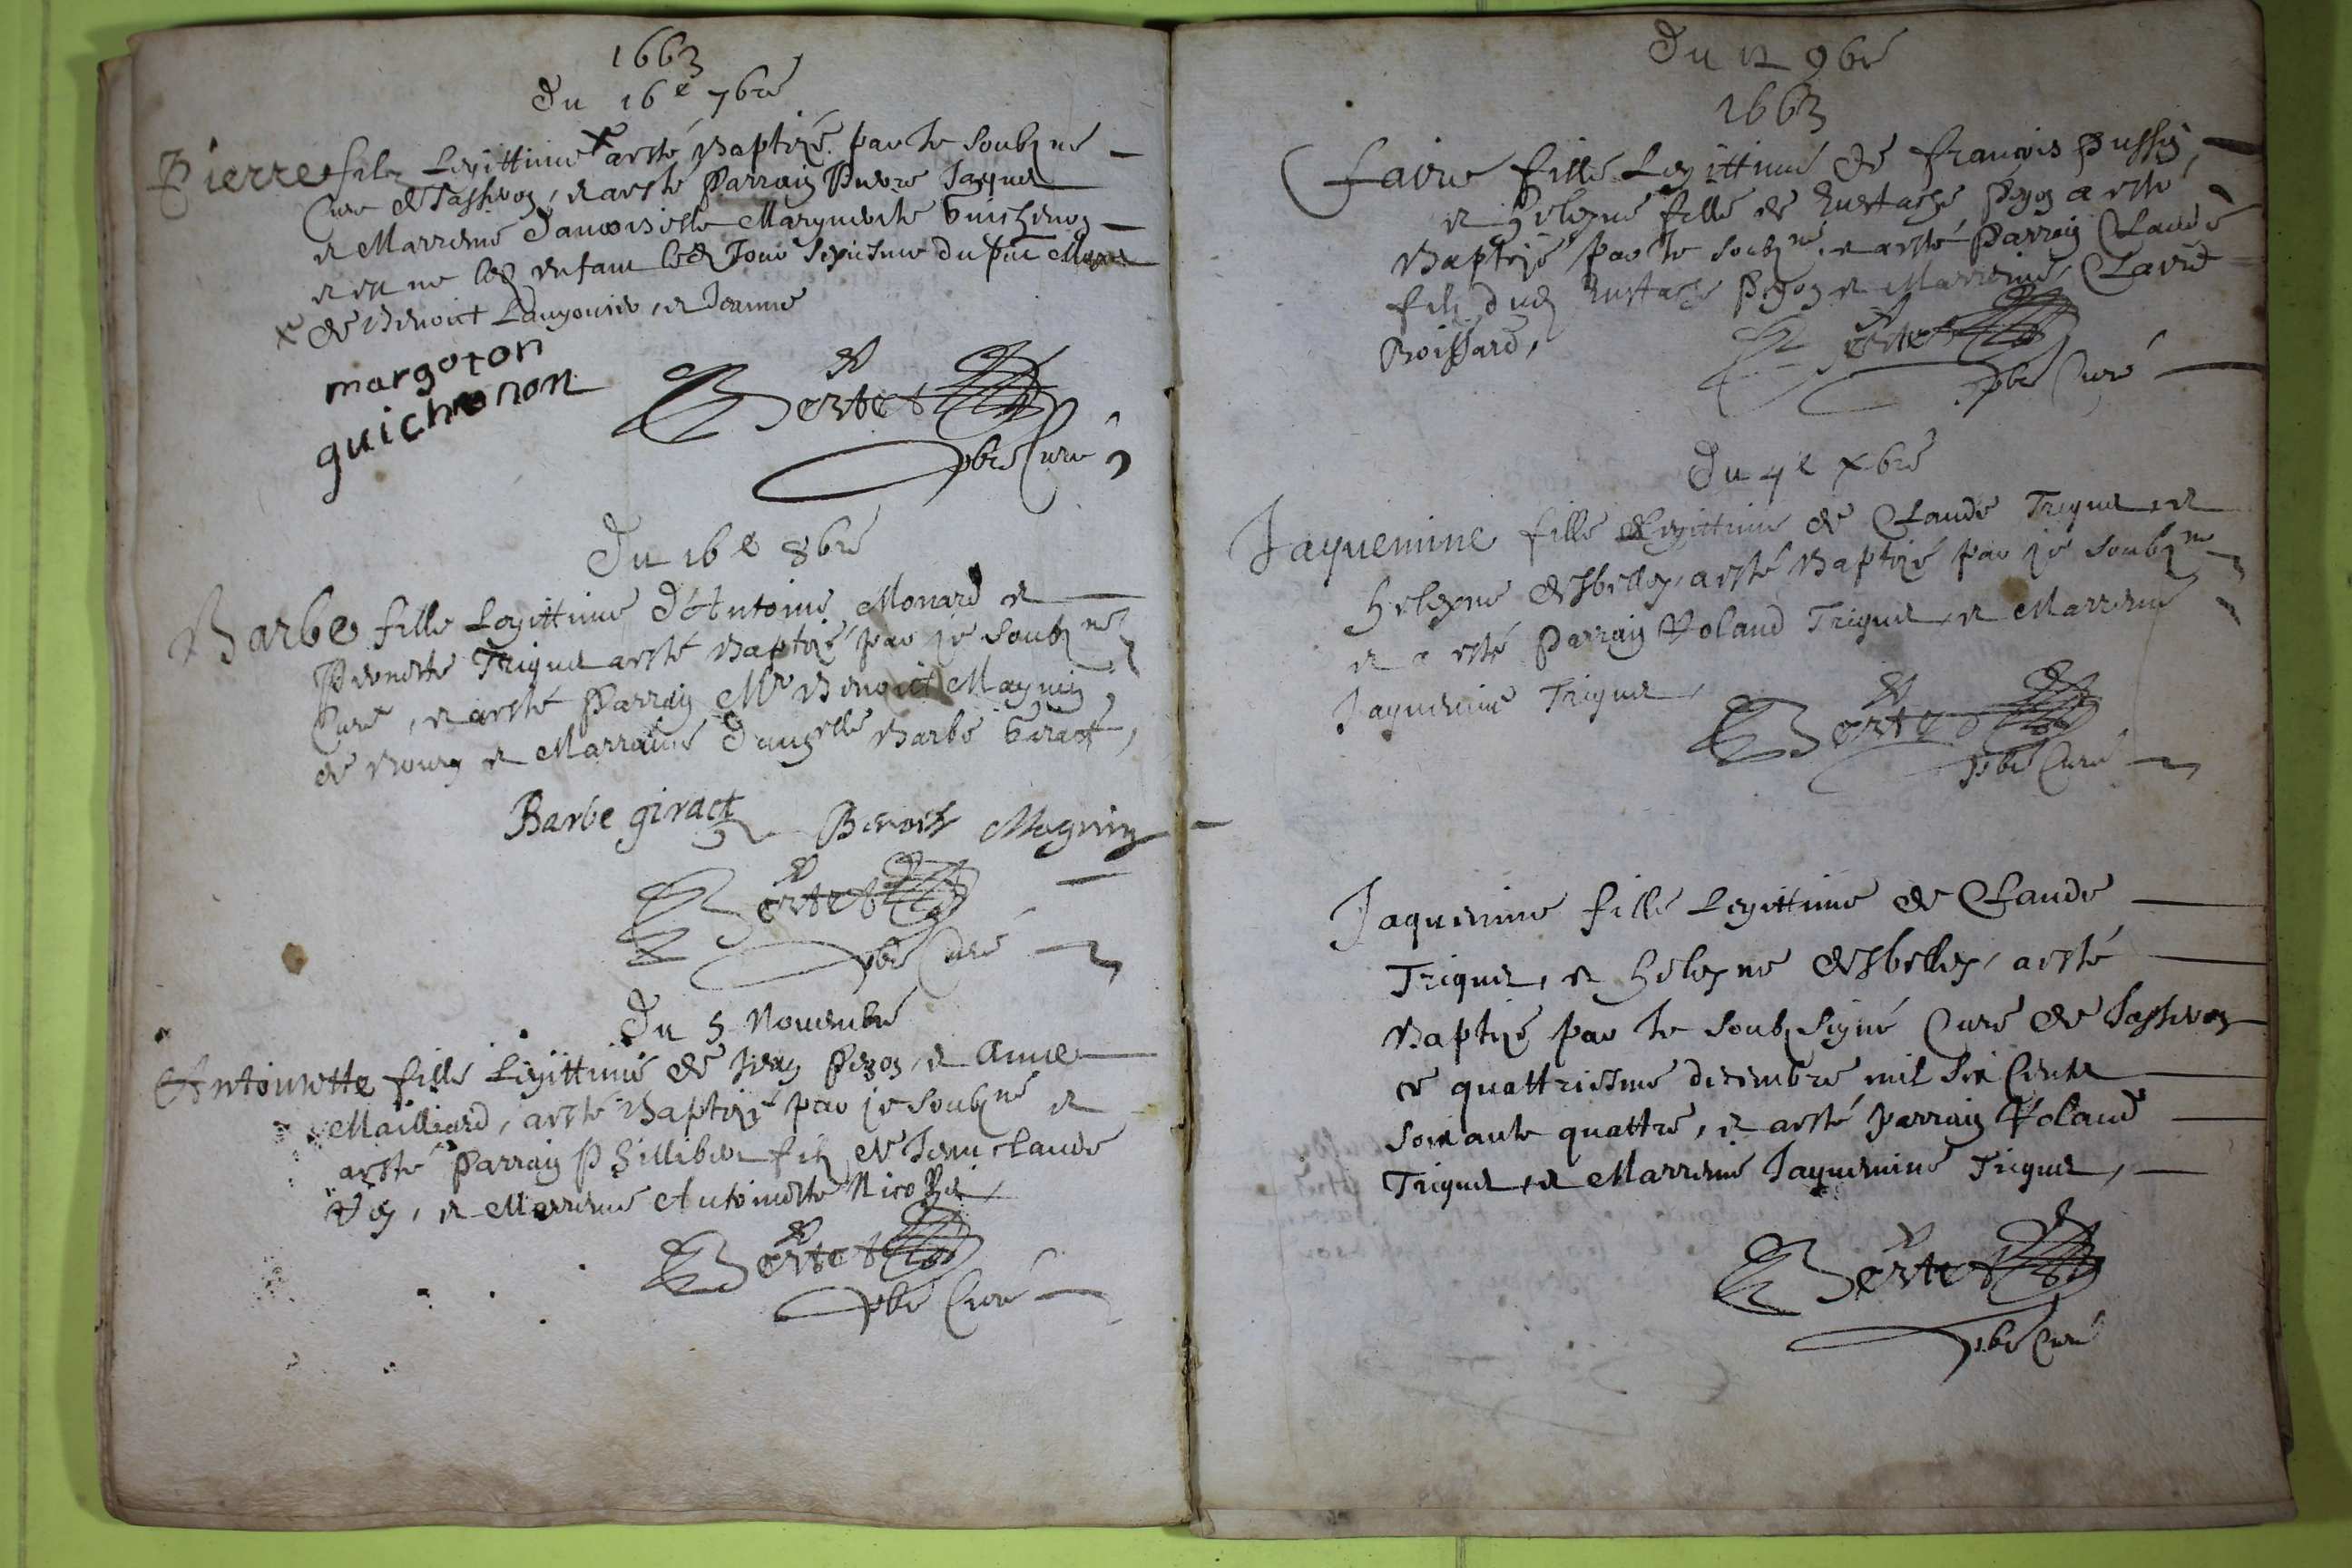 1663
Du 16e 7bre
Pierre filz Legittime x a esté Baptizé par Je Soubzné
Curé de Jasseron, et a esté Parrain Pierre Jaquet
et Marreine Damoiselle Marguerite Guichenon
et est né led enfant led Jour seziesme du pnt
x de Benoict et Jeanne
margoton
guichenon
Bertet
pbre Curé
Du 16e 8bre
Barbe fille Legittime d'Antoine Monard et
Pernette Triquet a esté Baptizé par je soubzné
Curé, et a esté Parrain Mre Benoict Magnin
de Bourg et Marraine Damelle Barbe Giract,
Barbe giract Benoist Magnin
Bertet
pbre Curé
Du 5 Novembre
Antoinette fille Legittime de Jean Pezon, et Anne
Mailliard, a esté Baptizé par je soubzné et
a esté Parrain Phillibert filz de Jean Claude
et Marreine Antoinette
Bertet
pbre Curé
Du 12 9bre
1663
Claire fille Legittime de françois
et Heleyne fille de Eustache Pezon a esté
Baptizé par Je soubzné, et a esté Parrain Claude
filz dud Eustache Pezon et Marreine, Claire
Boissard,
Bertet
pbre Curé
Du 4e Xbre
Jaquemine fille Legittime de Claude Triquet, et
Heleyne a esté Baptizé par je soubzné
et a esté Parrain Roland Triquet, et Marreine
Jaquemine Triquet,
Bertet
pbre Curé
Jaquemine fille Legittime de Claude
Triquet, et Heleyne a esté
Baptizé par Je soubzsigné Curé de Jasseron
ce quattriesme decembre mil six Cents
soixante quattre, et a esté parrain Roland
Triquet, et Marreine Jaquemine Triquet,
Bertet
pbre Curé